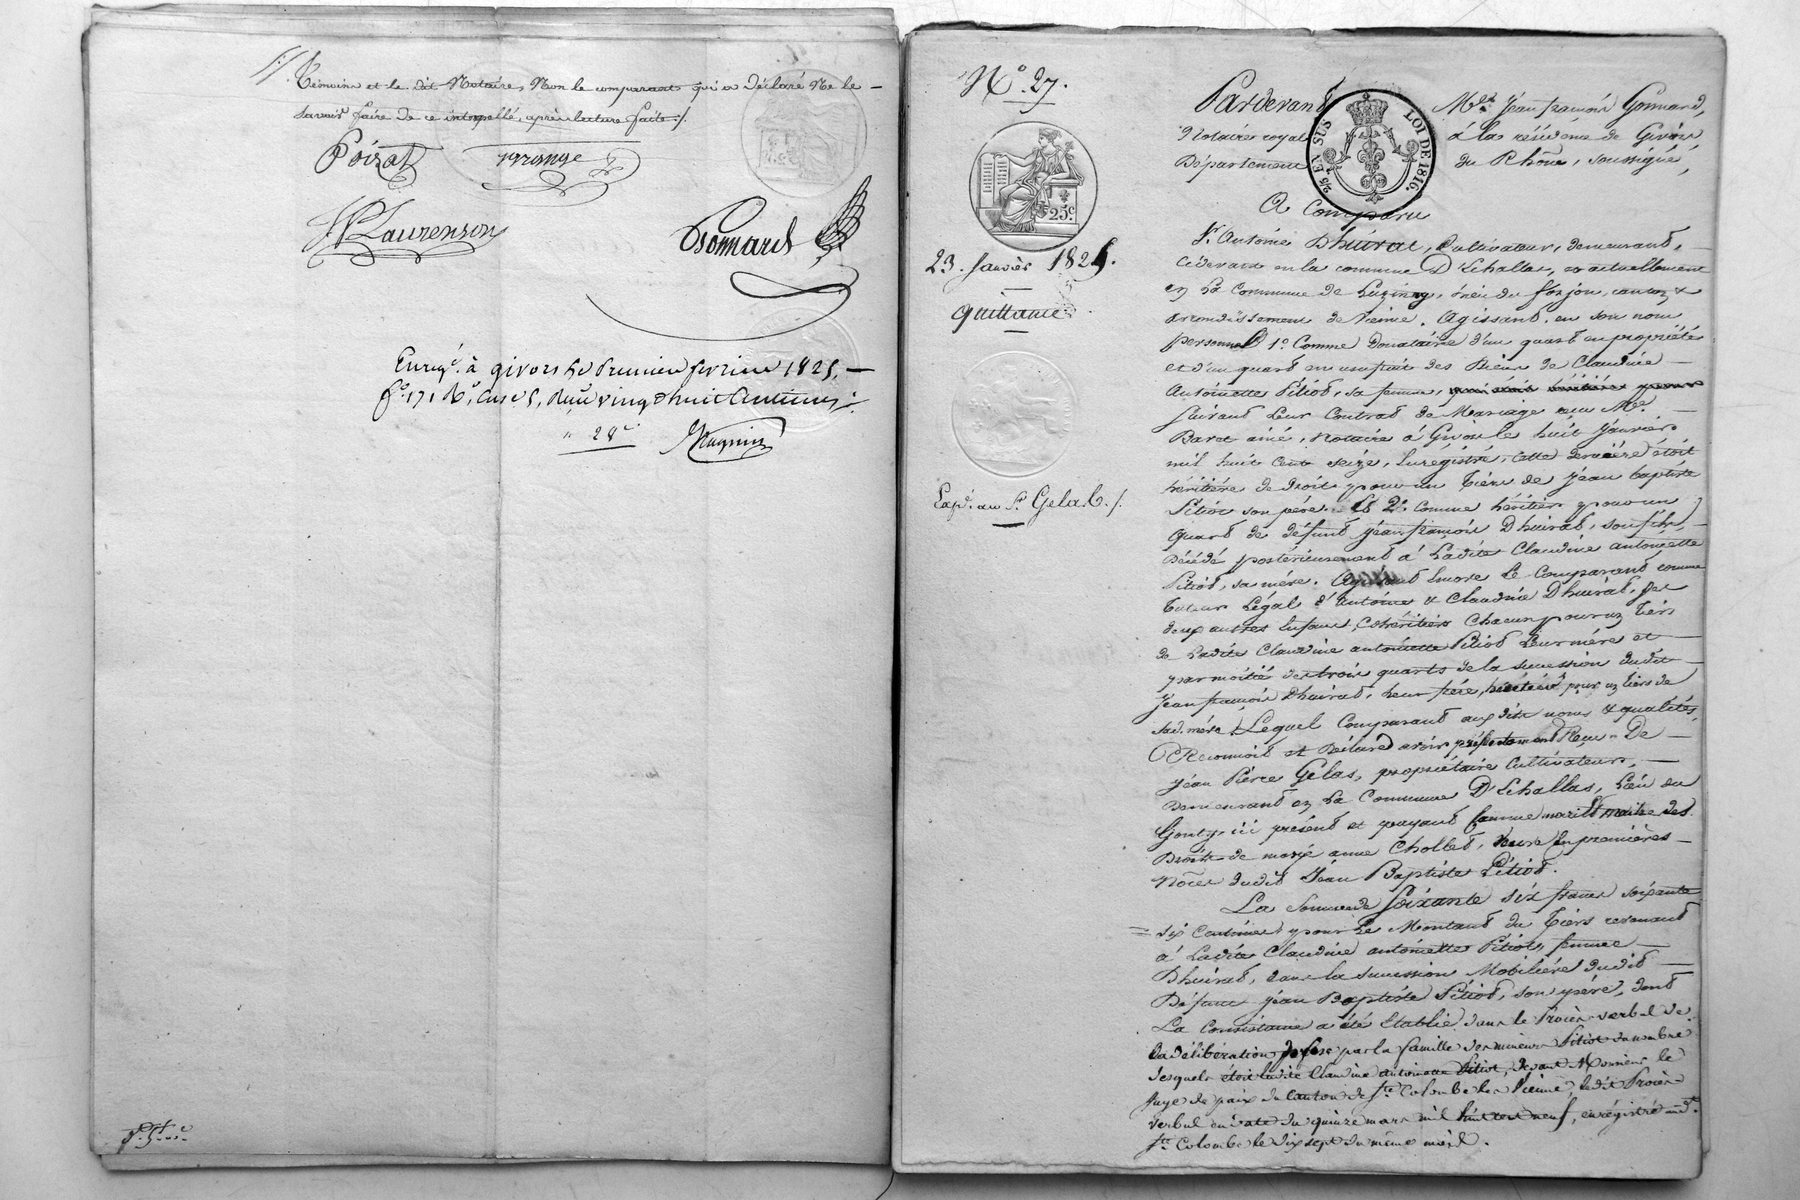 Témoins et le dit Notaire, Non le comparant qui a déclaré Ne le
savoir faire de ce interpellé, après lecture faite ./.
Poizat
Laurenson
Gonnard
Enreg.é à givors le Premier fevrier 1825,
f.o 171 R.o, Case 5, Reçu vingt huit Centimes
28 c
Magnin
N.o 27.
25 c.
23. Janvier 1825.
quittance
Exp.d au S.r Gelas ./.
25 EN SUS
LOI DE 1816.
Pardevant M.e Jean françois Gonnard,
Notaire royal à la résidence de Givors
Département du Rhône, soussigné,
A Comparu
S.r Antoine Dhuirat, Cultivateur, demeurant,
Cidevant en la commune D'Echallas, et actuellement
en La Commune de Luzinay, canton &
arrondissement de Vienne. Agissant en son nom
personnel 1.o Comme Donataire d'un quart en propriétés
et d'un quart en usufruit des Biens de Claudine
Antoinette Pitiot, sa femme,
suivant leur Contrat de Mariage reçu M.e
Baret ainé, Notaire à Givors le huit Janvier
mil huit cent seize, Enregistré, cette dernière étoit
héritière de droit pour un tiers de Jean baptiste
Pitiot son père. Et 2.o comme héritier pour un
quart de défunt Jean françois Dhuirat, son fils,
Décédé postérieurement à Ladite Claudine antoinette
Pitiot, sa mère. Agissant Encore le Comparant comme
tuteur Légal d'Antoine & Claudine Dhuirat, ses
deux autres Enfans, Cohéritiers Chacun pour un tiers
de Ladite Claudine antoinette Pitiot leur mère et
par moitié des trois quarts de la succession dudit
Jean françois Dhuirat, leur frère, héritier pour un tiers de
sad. mère. Lequel Comparant aux dits noms & qualités,
Reconnoit et Déclare avoir présentement Reçu De
Jean Pierre Gelas, propriétaire Cultivateur,
Demeurant en La Commune D'Echallas, Lieu du
Gonty, ici présent et payant Comme mari & maitre des
Droits de marie anne Chollet, veuve En premières
Nôces dudit Jean Baptiste Pitiot.
La Somme de Soixante six francs soixante
six Centimes, pour Le Montant du Tiers revenant
à Ladite Claudine antoinette Pitiot, femme
Dhuirat, dans la succession Mobilière dudit
Défunt Jean Baptiste Pitiot, son père, dont
La Consistance a été Etablie dans le Procès verbal de
la délibération par la famille des mineurs Pitiot du nombre
desquels étoit ladite Claudine antoinette Pitiot, devant Monsieur le
Juge de paix du Canton de S.te Colombe les Vienne, ledit Procès
verbal en date du quinze mars mil huit cent neuf, enrégistré aud.t
S.te Colombe le dix sept du même mois.